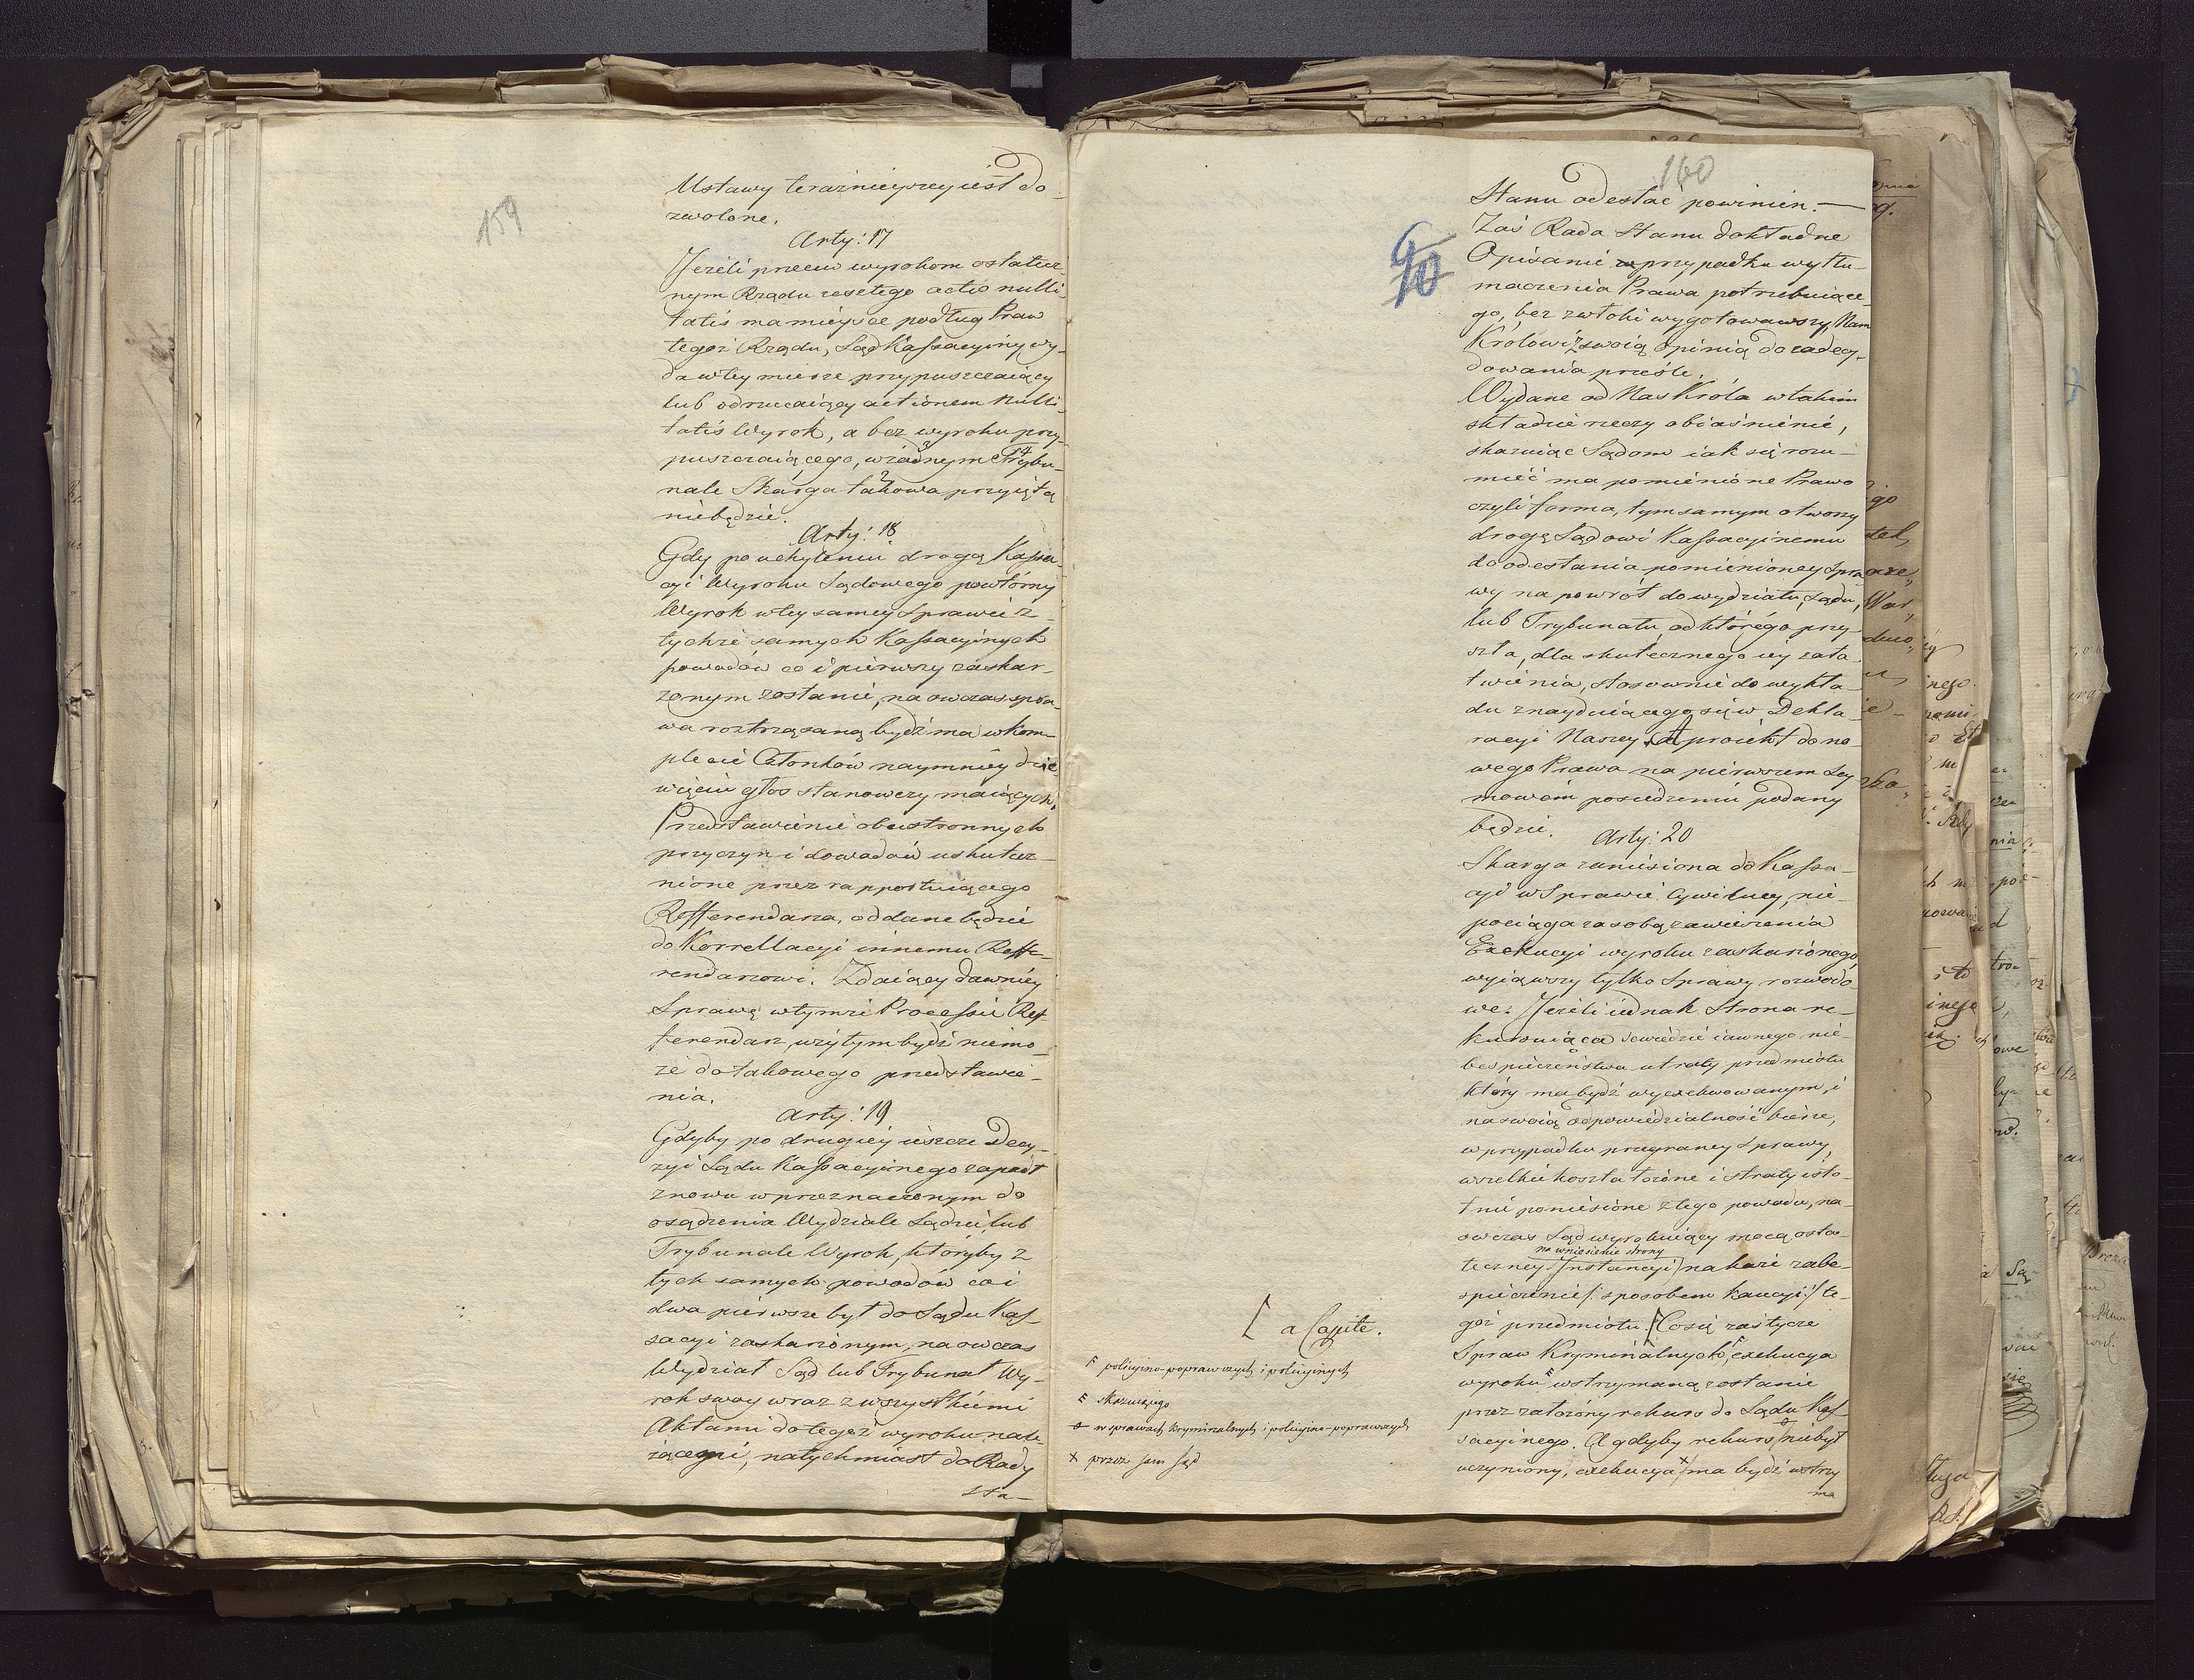 159
Ustawy teraznieyszey iest do
zwolone.
Arty: 17
Jeżeli przeciw wyrokom ostatecz-
nym Rządu zeszłego actio nulli-
tatis ma mieysce podług Praw
tegoż Rządu, Sąd Kassacyiny wy-
da w tey mierze przypuszczaiący
lub odrzucaiący actionem nulli-
tatis Wyrok, a bez wyroku przy-
puszczaiącego, w żadnym Trybu-
nale Skarga takowa przyiętą
niebędzie.
Arty: 18
Gdy po uchyleniu drogą Kassa-
cyi Wyroku Sądowego powtórny
Wyrok w tey samey Sprawie z
tychże samych Kassacyinych
powodów co i pierwszy zaskar-
żonym zostanie, na owczas spra-
wa roztrząsaną bydź ma w kom-
plecie Członków naymniey dzie
więciu głos stanowczy maiących.
Przedstawienie obustronnych
przyczyn i dowodów uskutecz-
nione przez rapportuiącego
Refferendarza, oddane będzie
do Korrellacyi innemu Reffe-
rendarzowi. Zdaiący dawniey
Sprawę w tymże Processie Ref-
ferendarz, użytym bydź niemo-
że do takowego przedstawie-
nia.
Arty: 19
Gdyby po drugiey ieszcze Decy-
zyi Sądu Kassacyinego zapadł
znowu w przeznaczonym do
osądzenia Wydziale Sądzie, lub
Trybunale Wyrok, któryby z
tych samych powodów co i
dwa pierwsze był do Sądu Kas-
sacyi zaskarżonym, na owczas
Wydział Sąd lub Trybunał Wy-
rok swoy wraz z wszystkiemi
Aktami do tegoż wyroku nale-
żącemi, natychmiast do Rady
Sta-
160
90
Stanu odesłać powinien.—
Zaś Rada Stanu dokładne
Opisanie przypadku wytłu-
maczenia Prawa potrzebuiące-
go, bez zwłoki wygotowawszy, Nam
Królowi z swoią Opinią do zadecy-
dowania prześle.
Wydane od Nas Króla w takim
składzie rzeczy obiaśnienie,
skazuiąc Sądom iak się rozu-
mieć ma pomienione Prawo
czyli forma, tym samym otworzy
drogę Sądowi Kassacyinemu
do odesłania pomienioney Spra
wy na powrót do wydziału, Sądu,
lub Trybunału, od którego przy-
szła, dla skutecznego iey zała-
twienia, stosownie do wykła-
du znayduiącego się w Dekla-
racyi Naszey, A proiekt do no-
wego Prawa na pierwszem Sey
mowem posiedzeniu podany
będzie.
Arty: 20
Skarga zaniesiona do Kassa-
cyi w Sprawie Cywilney, nie-
pociąga za sobą zawieszenia
Exekucyi wyroku zaskarżonego,
wyiąwszy tylko Sprawy rozwodo-
we: Jeżeli iednak Strona re-
kursuiąca dowiedzie iawnego nie-
bespieczeństwa utraty przedmiotu
który ma bydź wyexekwowanym, i
na swoią odpowiedzialność bierze,
w przypadku przegraney Sprawy,
wszelkie koszta łożone i straty isto-
tnie poniesione z tego powodu, na-
owczas Sąd wyrokuiący mocą osta-
na wniesienie strony
teczney Instancyi nakaże zabe-
spieczenie /: sposobem kaucyi :/ te-
goż przedmiotu. [Co się zaś tycze
Spraw Kryminalnych F, exekucya
wyroku F wstrzymaną zostanie
przez założony rekurs do Sądu Kas-
sacyinego. A gdyby rekurs niebył
uczyniony, exekucya x ma bydź wstrzy
ma
[ a Capite.
F policyino-poprawczych i policyinych
F skazuiącego
w sprawach kryminalnych i policyino-poprawczych
x przez sam sąd